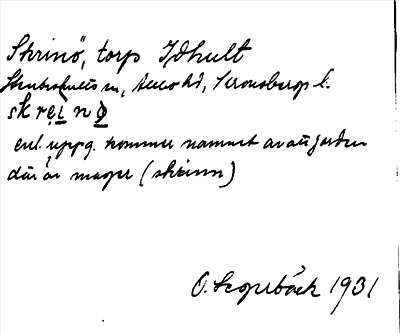 Skrinö, torp Idhult
Skatelövs sn, Allbo hd, Kronobergs l.
skrẹi̱nö̱
enl. uppg. kommer namnet av att jorden
där är mager (skrinn)
O. Bogebäck 1931